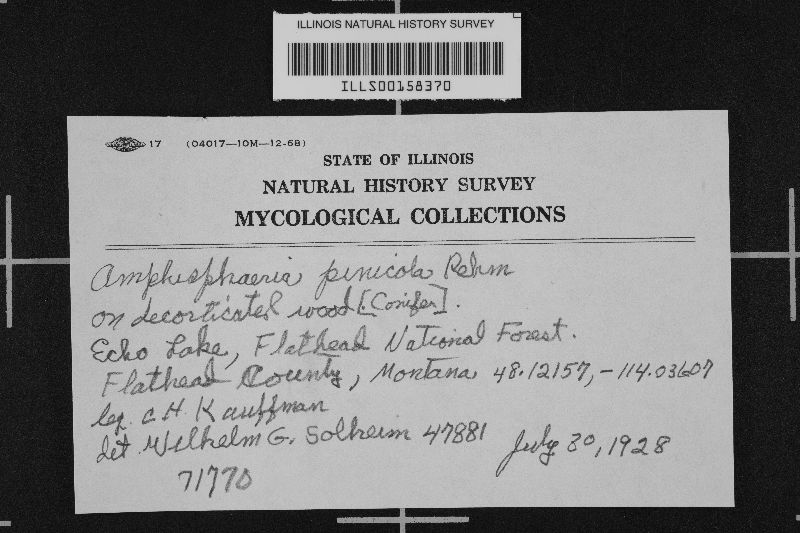 ILLINOIS NATURAL HISTORY SURVEY
ILLS00158370
17 (04017—10M—12-68)
STATE OF ILLINOIS
NATURAL HISTORY SURVEY
MYCOLOGICAL COLLECTIONS
Amphisphaeria pinicola Rehm
on decorticated wood [Conifer].
Echo Lake, Flathead National Forest.
Flathead County, Montana 48.12157, -114.03607
leg. C.H. Kauffman
det Wilhelm G. Solheim 47881 July 30, 1928
71770